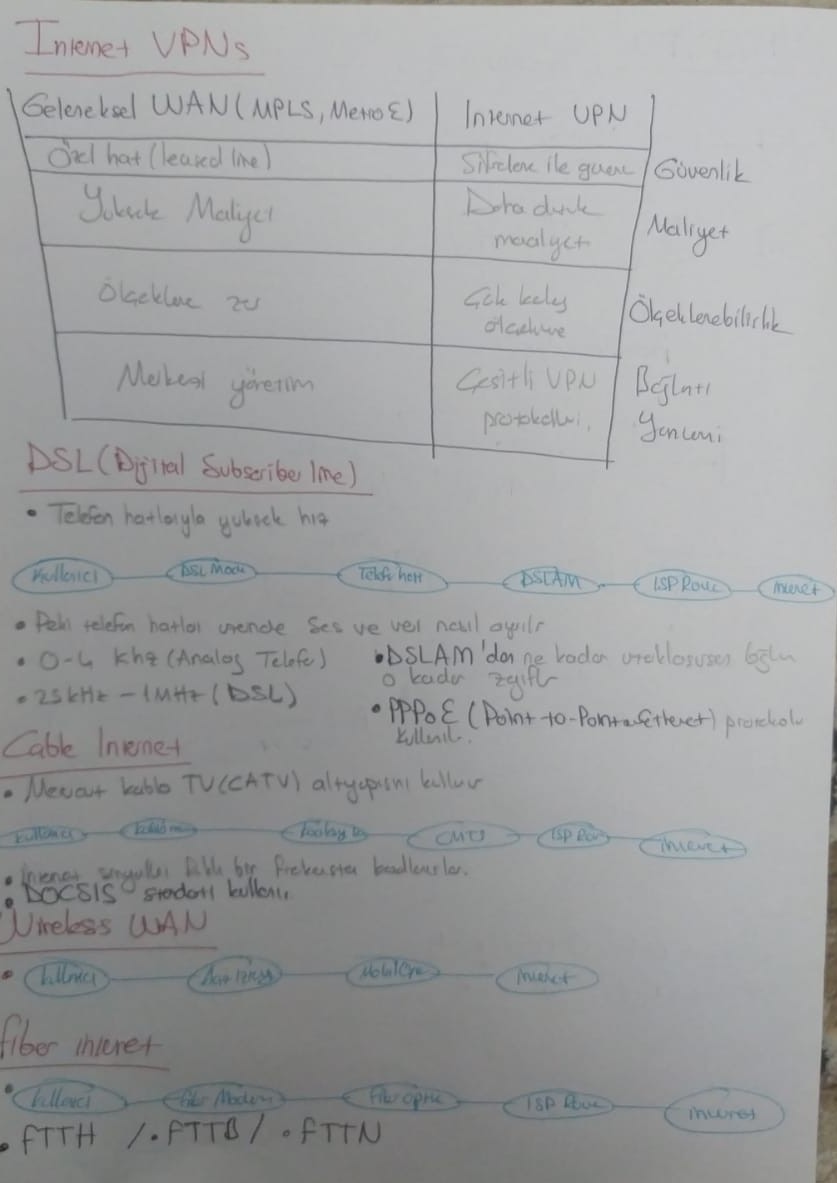 Internet VPNs
Geleneksel WAN (MPLS, MetroE) Internet VPN
Özel hat (leased line) Şifreleme ile güven Güvenlik
Yüksek Maliyet Daha düşük maaliyet Maliyet
Ölçekleme zor Çok kolay ölçekleme Ölçeklenebilirlik
Merkezi yönetim Çeşitli VPN protokolleri. Bağlantı Yöntemi
DSL (Dijital Subscriber line)
• Telefon hatlarıyla yüksek hız
Kullanıcı DSL Modem Telefon hattı DSLAM ISP Router internet
• Peki telefon hatları üzerinde Ses ve veri nasıl ayrılır
• 0-4 khz (Analog Telefon)
• 25kHz - 1MHz (DSL)
• DSLAM'dan ne kadar uzaklaşırsan bağlantı
o kadar zayıflar
• PPPoE (Point-to-Point Ethernet) protokolü
kullanılır.
Cable Internet
• Mevcut kablo TV (CATV) altyapısını kullanır
kullanıcı CMTS ISP Router internet
• İnternet sinyalleri farklı bir frekanstan
• DOCSIS standartı kullanır.
Wireless WAN
• kullanıcı Mobil Core internet
fiber internet
• kullanıcı fiber Modem fiber optik ISP Router internet
• FTTH / • FTTB / • FTTN